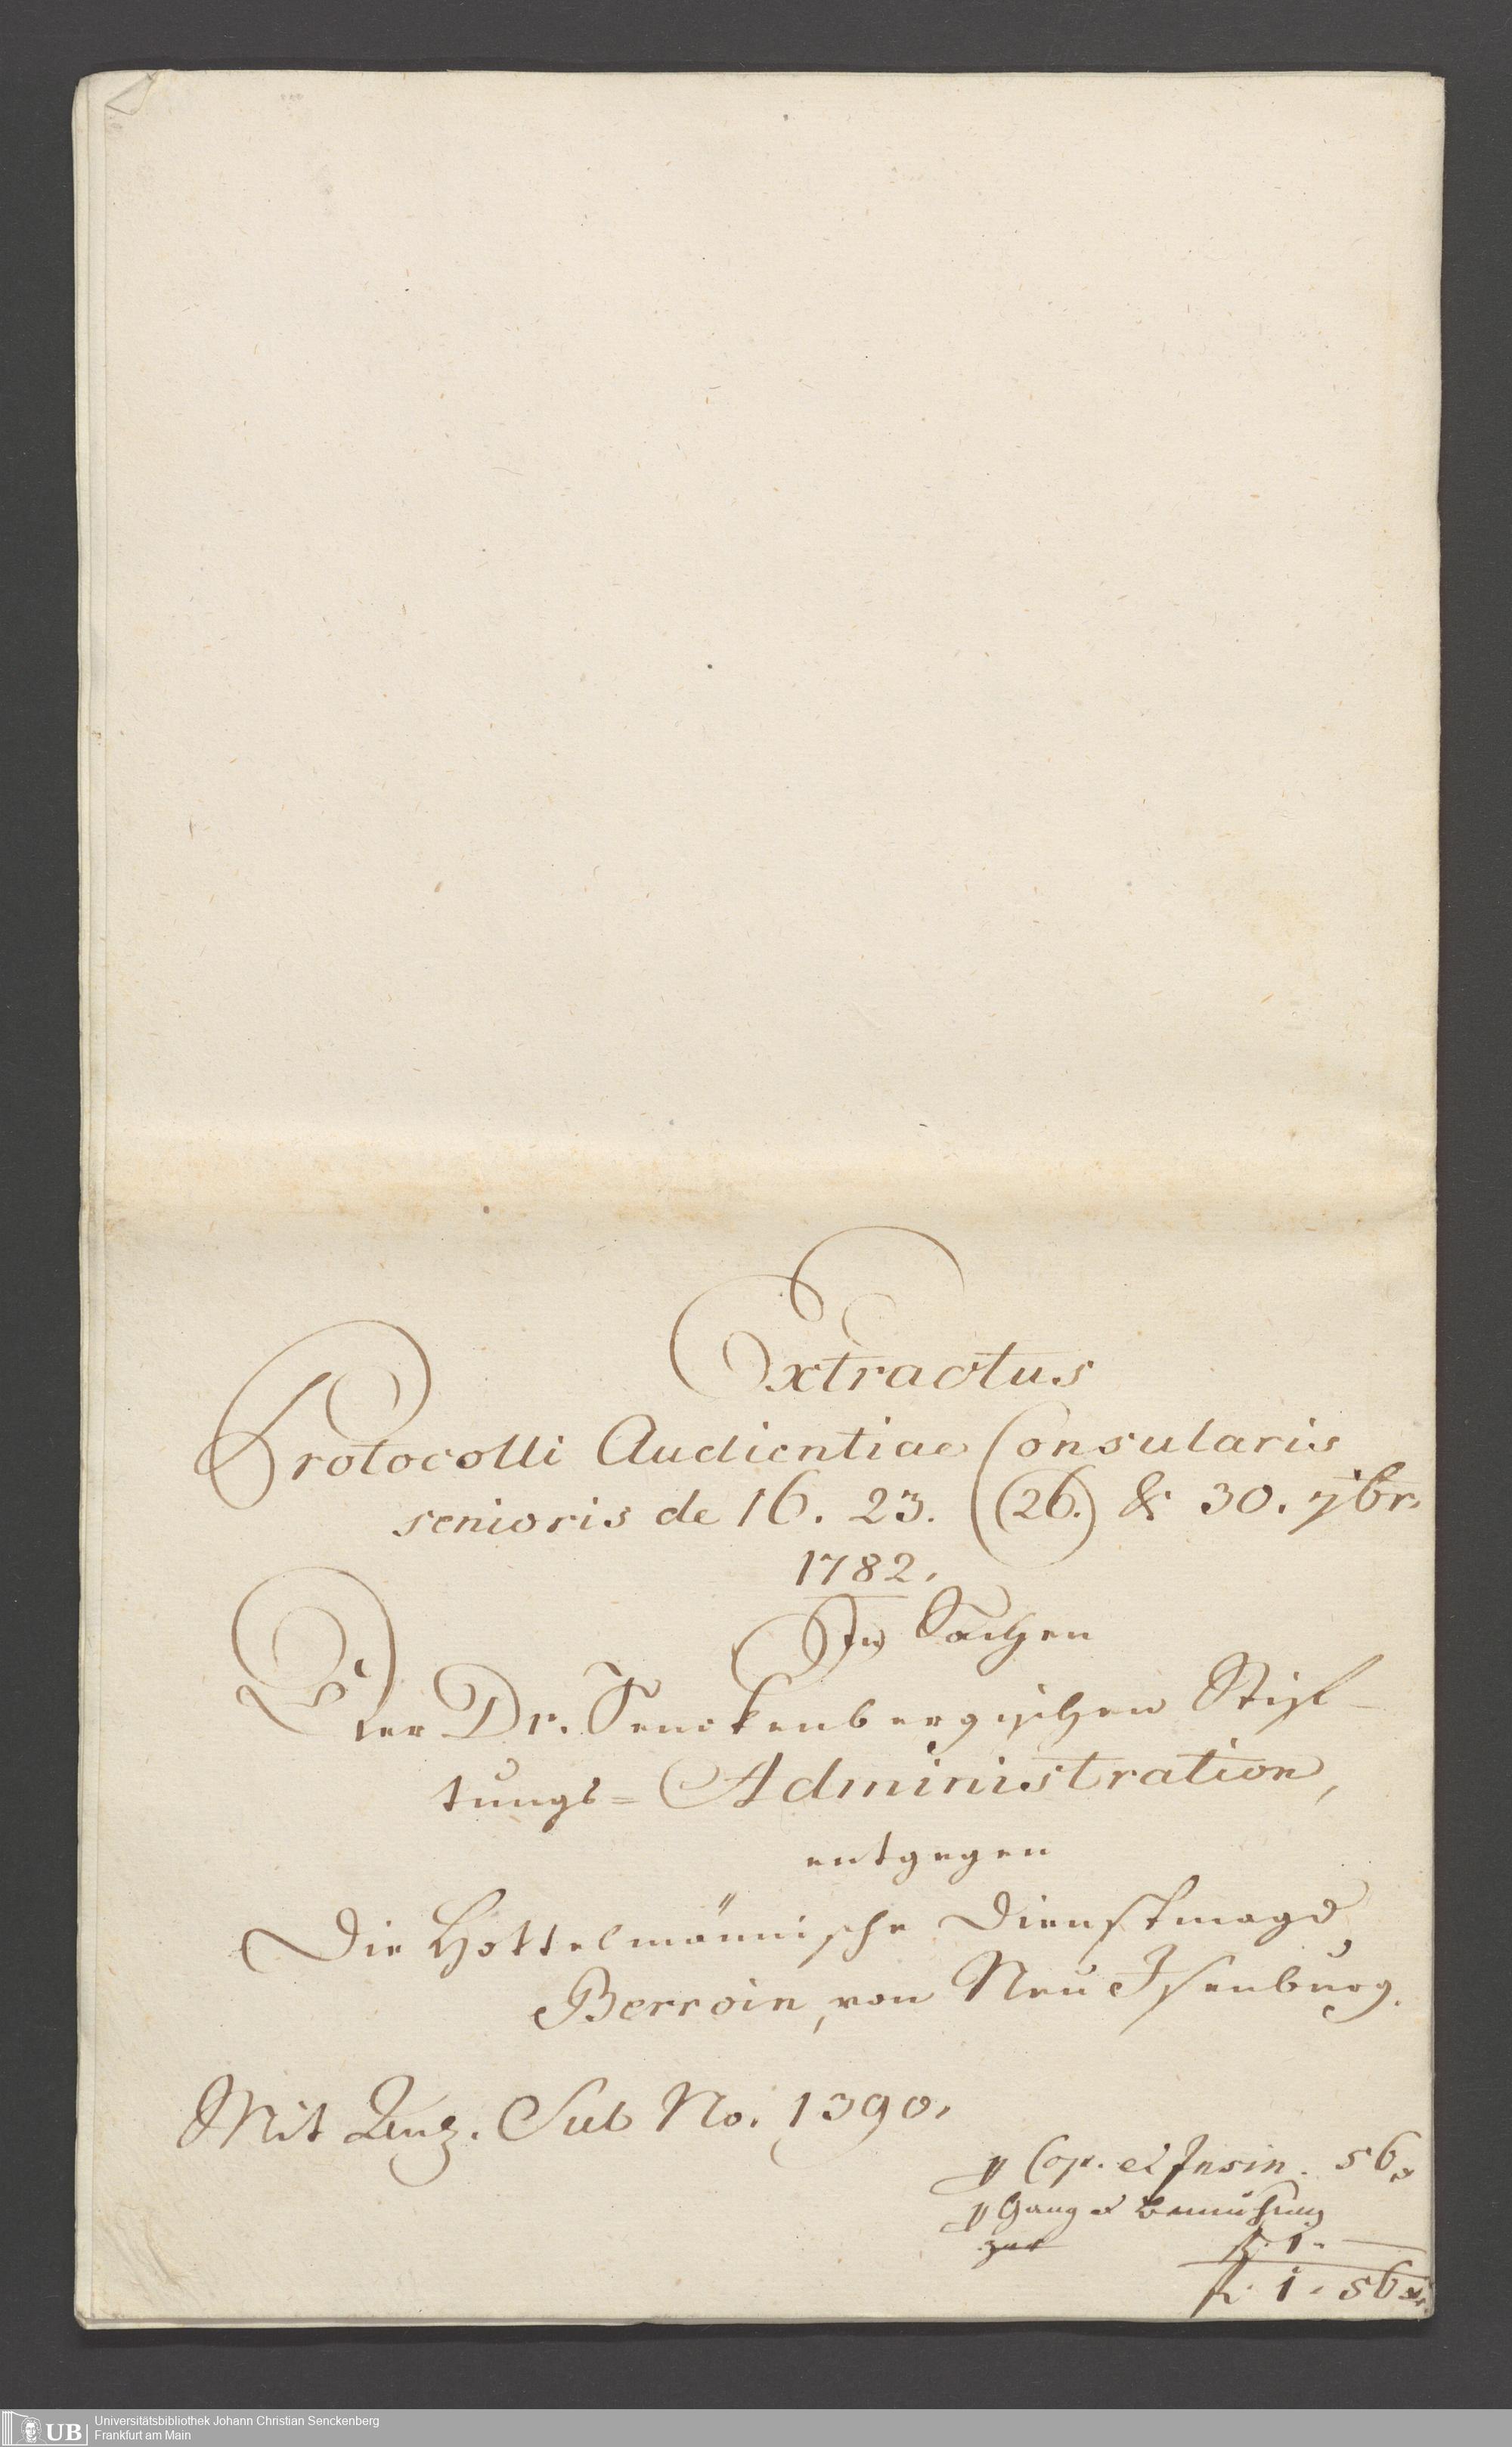 Extractus
Protocolli Audientiae Consularis
senioris de 16. 23. (26.) & 30. 7br.
1782.
In Sachen
Der Dr. Senckenbergischen Stif-
tungs= Administration,
entgegen
Die Hottelmännische Dienstmagd
Berroin, von Neu Isenburg.
Mit Anz. Sub No. 1390.
p Cop. et Insin. 56
p Gang u Bemühung
zur f. 1. —
f. 1. 56 xr.
Universitätsbibliothek Johann Christian Senckenberg
UB Frankfurt am Main